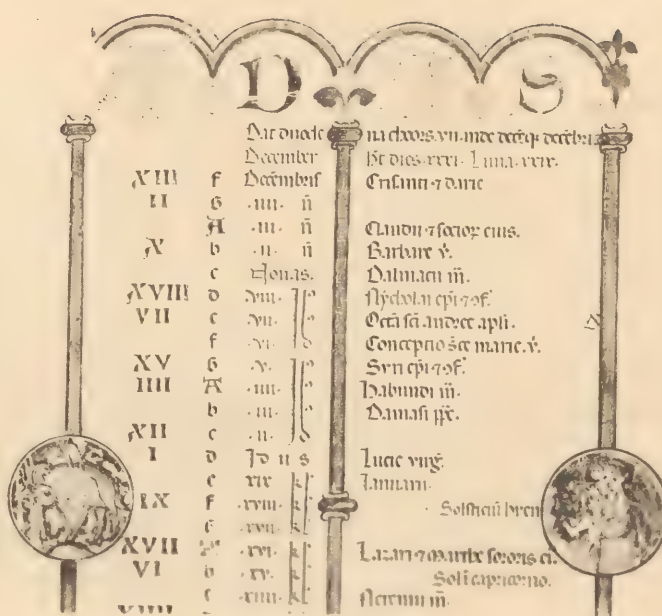 D S
Dat duode na cleors. vii. inde decēq; decēbris
December ħt dies. xxxi. Luna. xxix.
XIII f Decēmbris Crisanti ⁊ darie
II G .iiii. ñ
A .iii. ñ Claudii ⁊ socior eius.
X b .ii. ñ Barbare v̄.
c Nonas. Dalmacii m̄.
XVIII d .viii. Id Nycholai epī ⁊ ɔf.
VII e .vii. Octā scī andree apli.
f .vi. Conceptio sce marie. v̄.
XV G .v. Id Syri epī ⁊ ɔf.
IIII A .iiii. Habundi m̄.
b .iii. Damasi pp̄e.
XII c .ii.
I d Idus Lucie virḡ.
e xix kl Ianuarii.
IX f .xviii. kl Solsticiū
G .xvii.
XVII A .xvi. kl Lazari ⁊ marthe sororis ei.
VI b .xv. Sol ī capricorno.
c .xiiii. kl m̄.